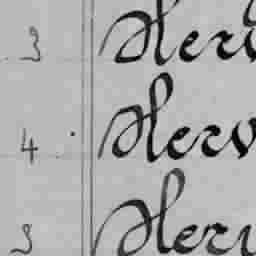 3 Herv
4 Herv
3 Herv